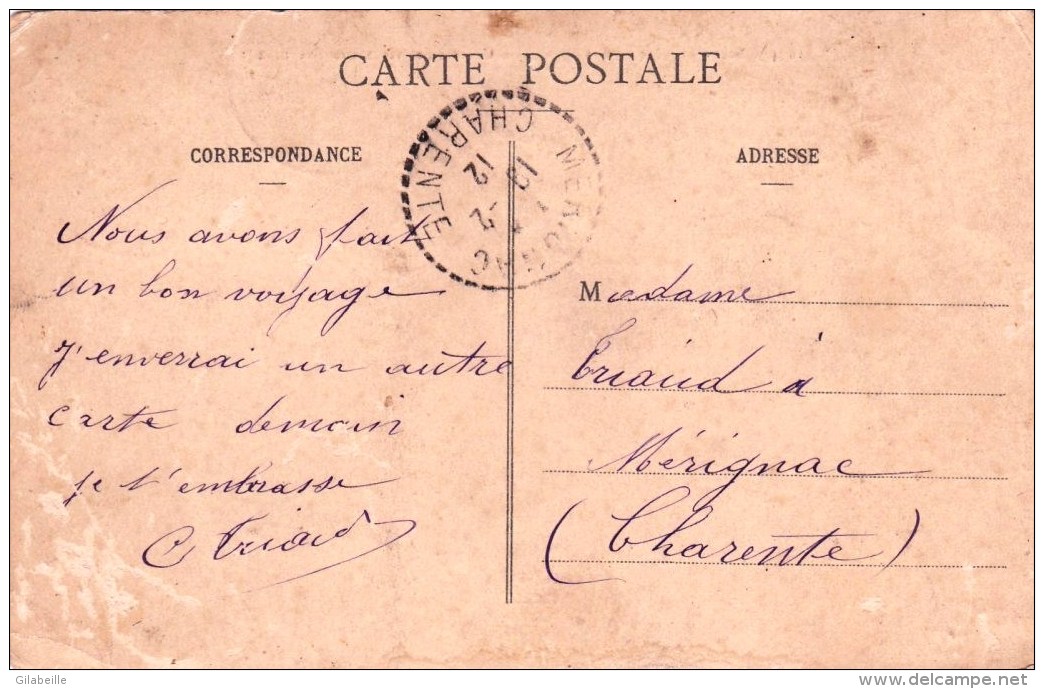 CARTE POSTALE
CORRESPONDANCE
ADRESSE
MERIGNAC
CHARENTE
12 -2
12
Nous avons fait
un bon voyage
J'enverrai un autre
carte demain
je t'embrasse
C Triaud
Madame
Triaud à
Mérignac
(Charente)
Gilabeille
www.delcampe.net